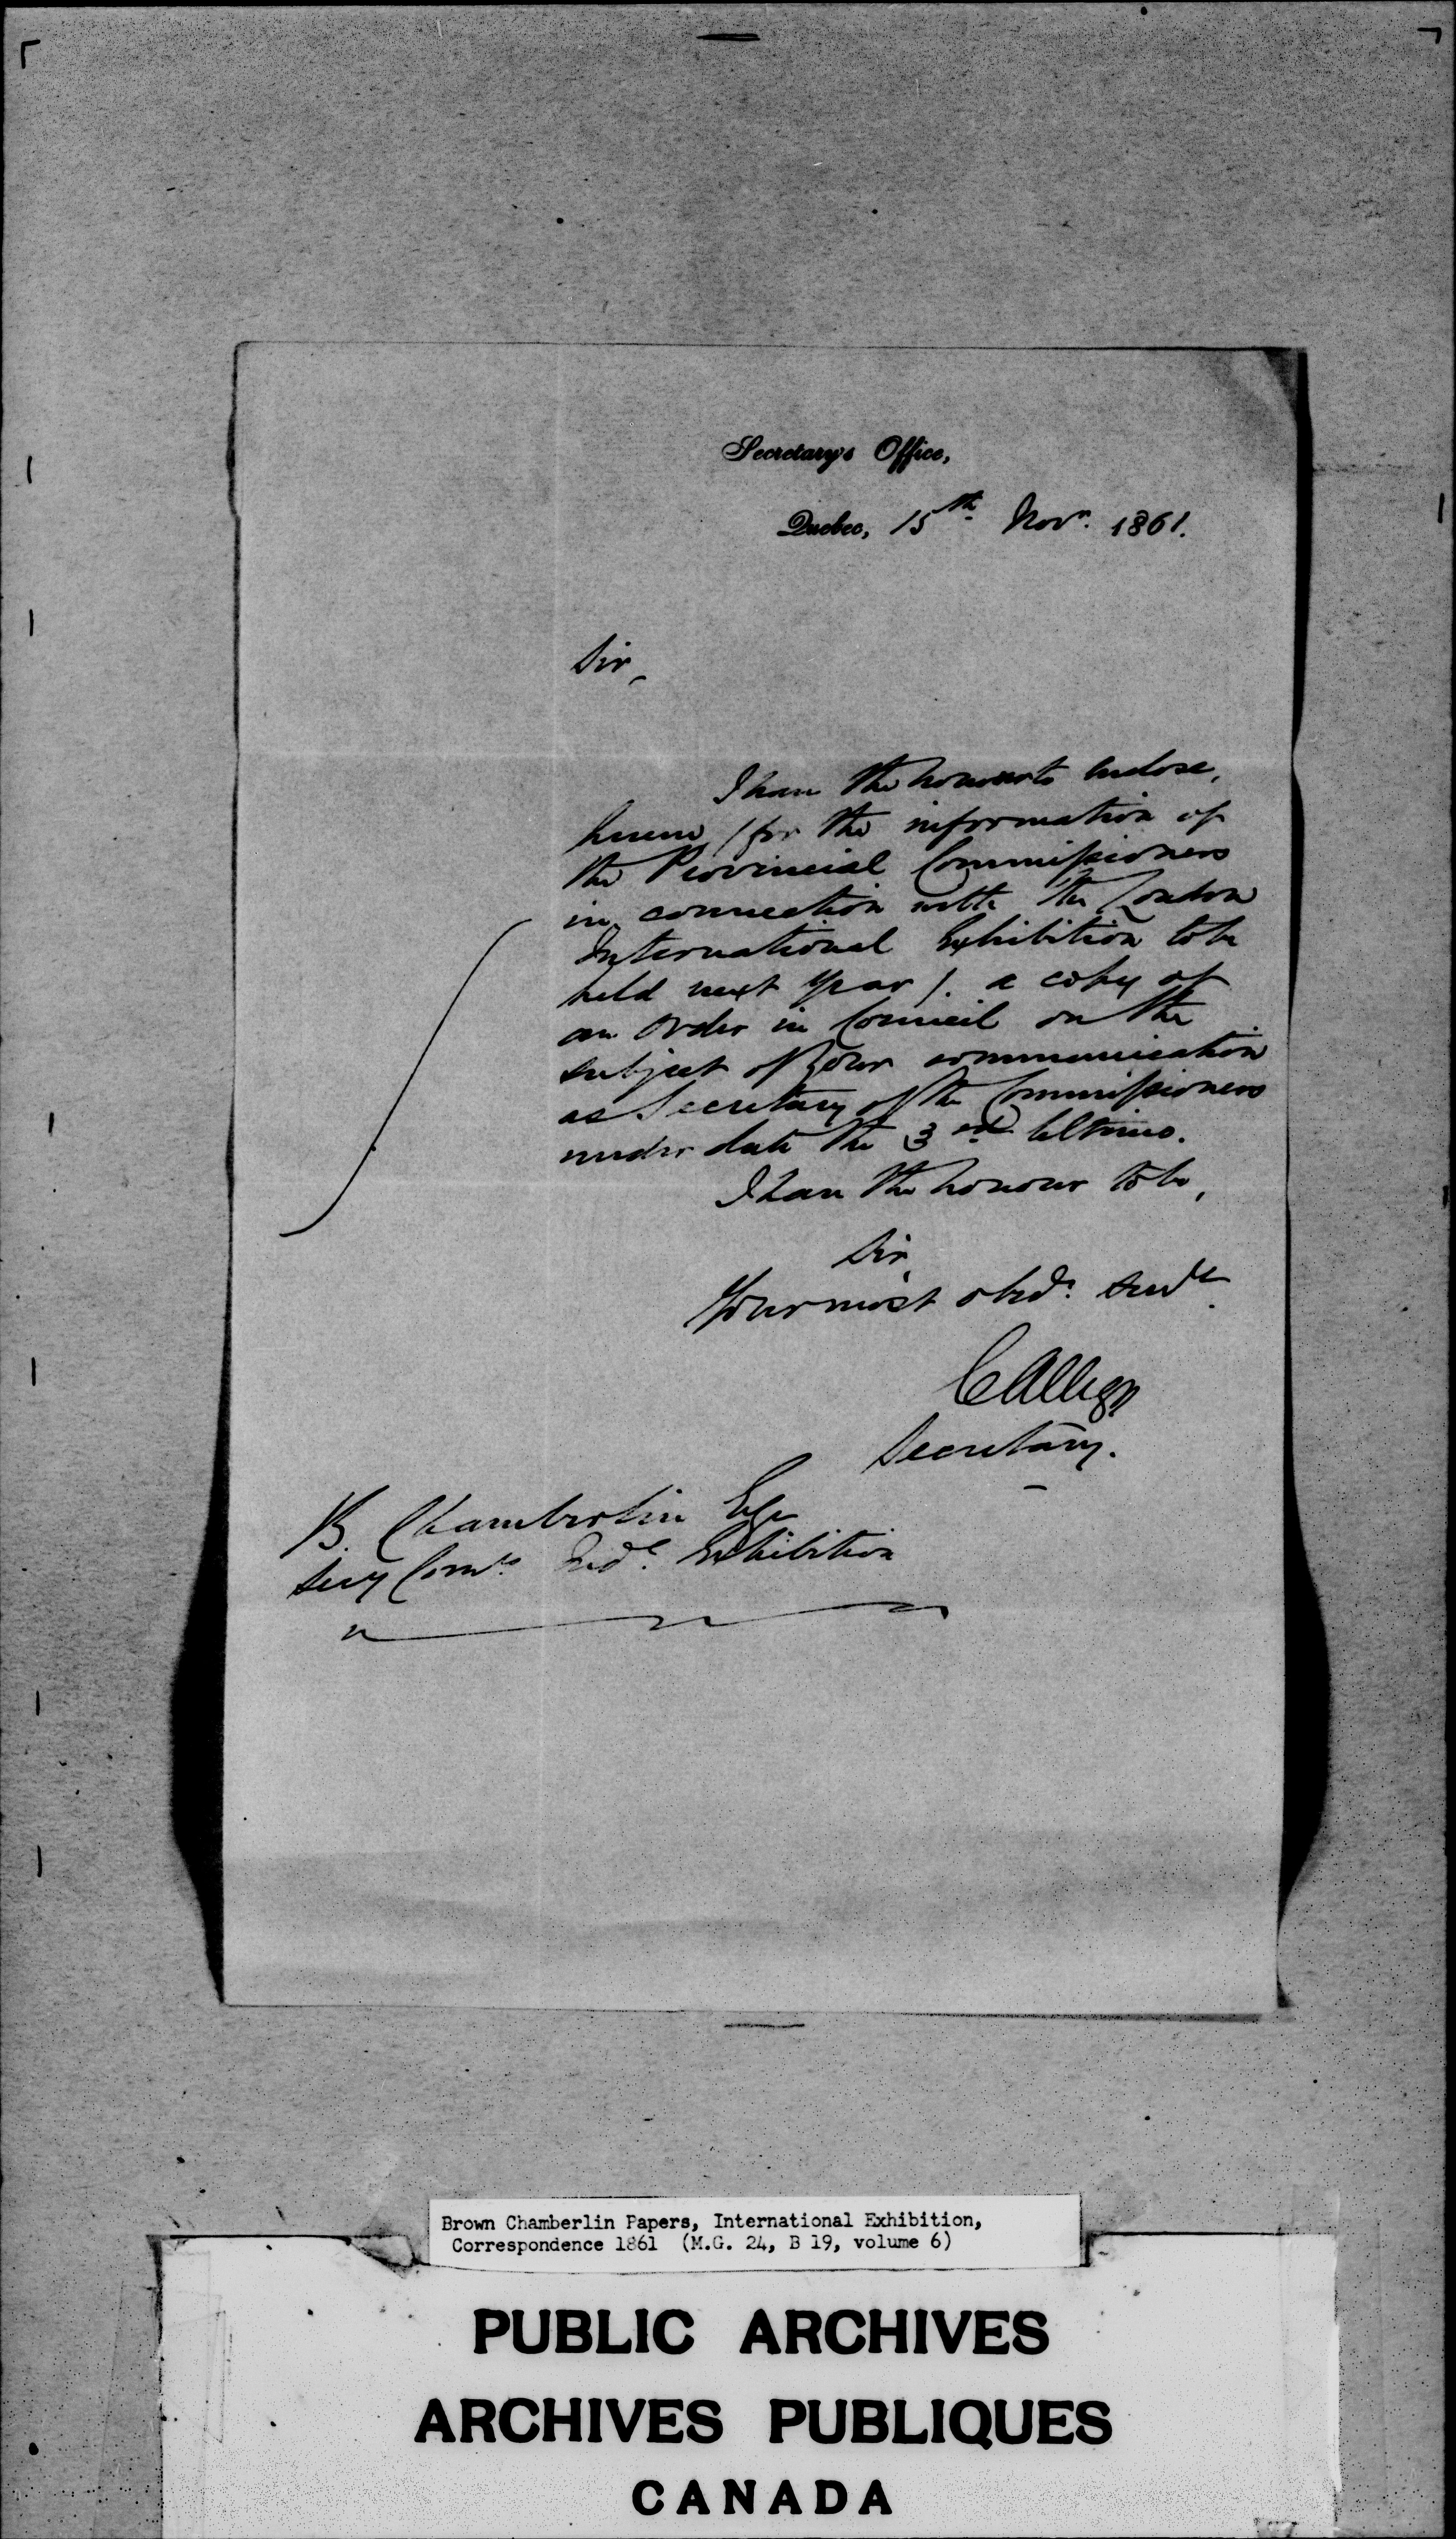 Secretary's Office,
Quebec, 15th Novr. 1861.
Sir,
I have the honour to enclose,
herein, (for the information of
the Provincial Commissioners
in connection with the London
International Exhibition to be
held next year). a copy of
an Order in Council on the
subject of your communication
as Secretary of the Commissioners
under date the 3rd Ultimo.
I have the honour to be,
Sir,
Your most obedt. Servt.
C Alleyn
Secretary.
B. Chamberlin Esqr
Secy Comrs. Exhibition
Brown Chamberlin Papers, International Exhibition,
Correspondence 1861 (M.G. 24, B 19, volume 6)
PUBLIC ARCHIVES
ARCHIVES PUBLIQUES
CANADA